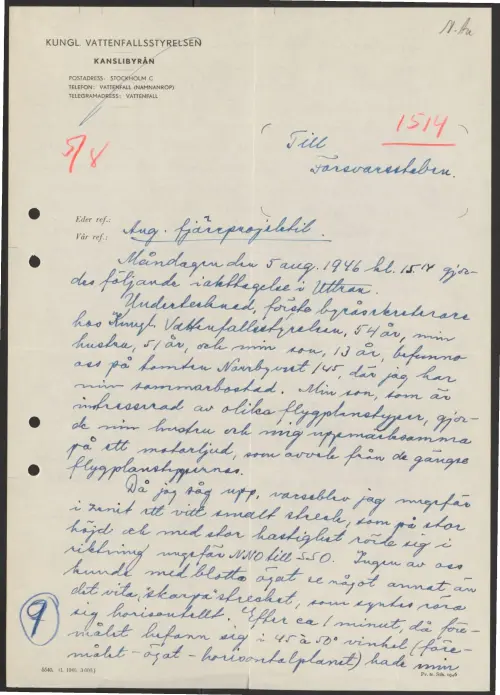 KUNGL. VATTENFALLSSTYRELSEN
KANSLIBYRÅN
POSTADRESS: STOCKHOLM C
TELEFON: VATTENFALL (NAMNANROP)
TELEGRAMADRESS: VATTENFALL
5/8
1514
Till
Försvarsstaben.
Eder ref.:
Vår ref.:
Ang. fjärrprojektil.
Måndagen den 5 aug. 1946 kl. 15.14 gjor-
des följande iakttagelse i Uttran.
Undertecknad, förste byråsekreterare
hos Kungl. Vattenfallsstyrelsen, 54 år, min
hustru, 51 år, och min son, 13 år, befunno
oss på tomten 145, där jag har
min sommarbostad. Min son, som är
intresserad av olika flygplanstyper, gjor-
de min hustru och mig uppmärksamma
på ett motorljud, som avvek från de gängse
flygplanstypernas.
Då jag såg upp, varseblev jag ungefär
i zenit ett vitt smalt streck, som på stor
höjd och med stor hastighet rörde sig i
riktning ungefär NNO till SSO. Ingen av oss
kunde med blotta ögat se något annat än
det vita, skarpa strecket, som syntes röra
sig horisontellt. Efter ca 1 minut, då före-
målet befann sig i 45 à 50° vinkel (före-
målet - ögat - horisontalplanet) hade min
9